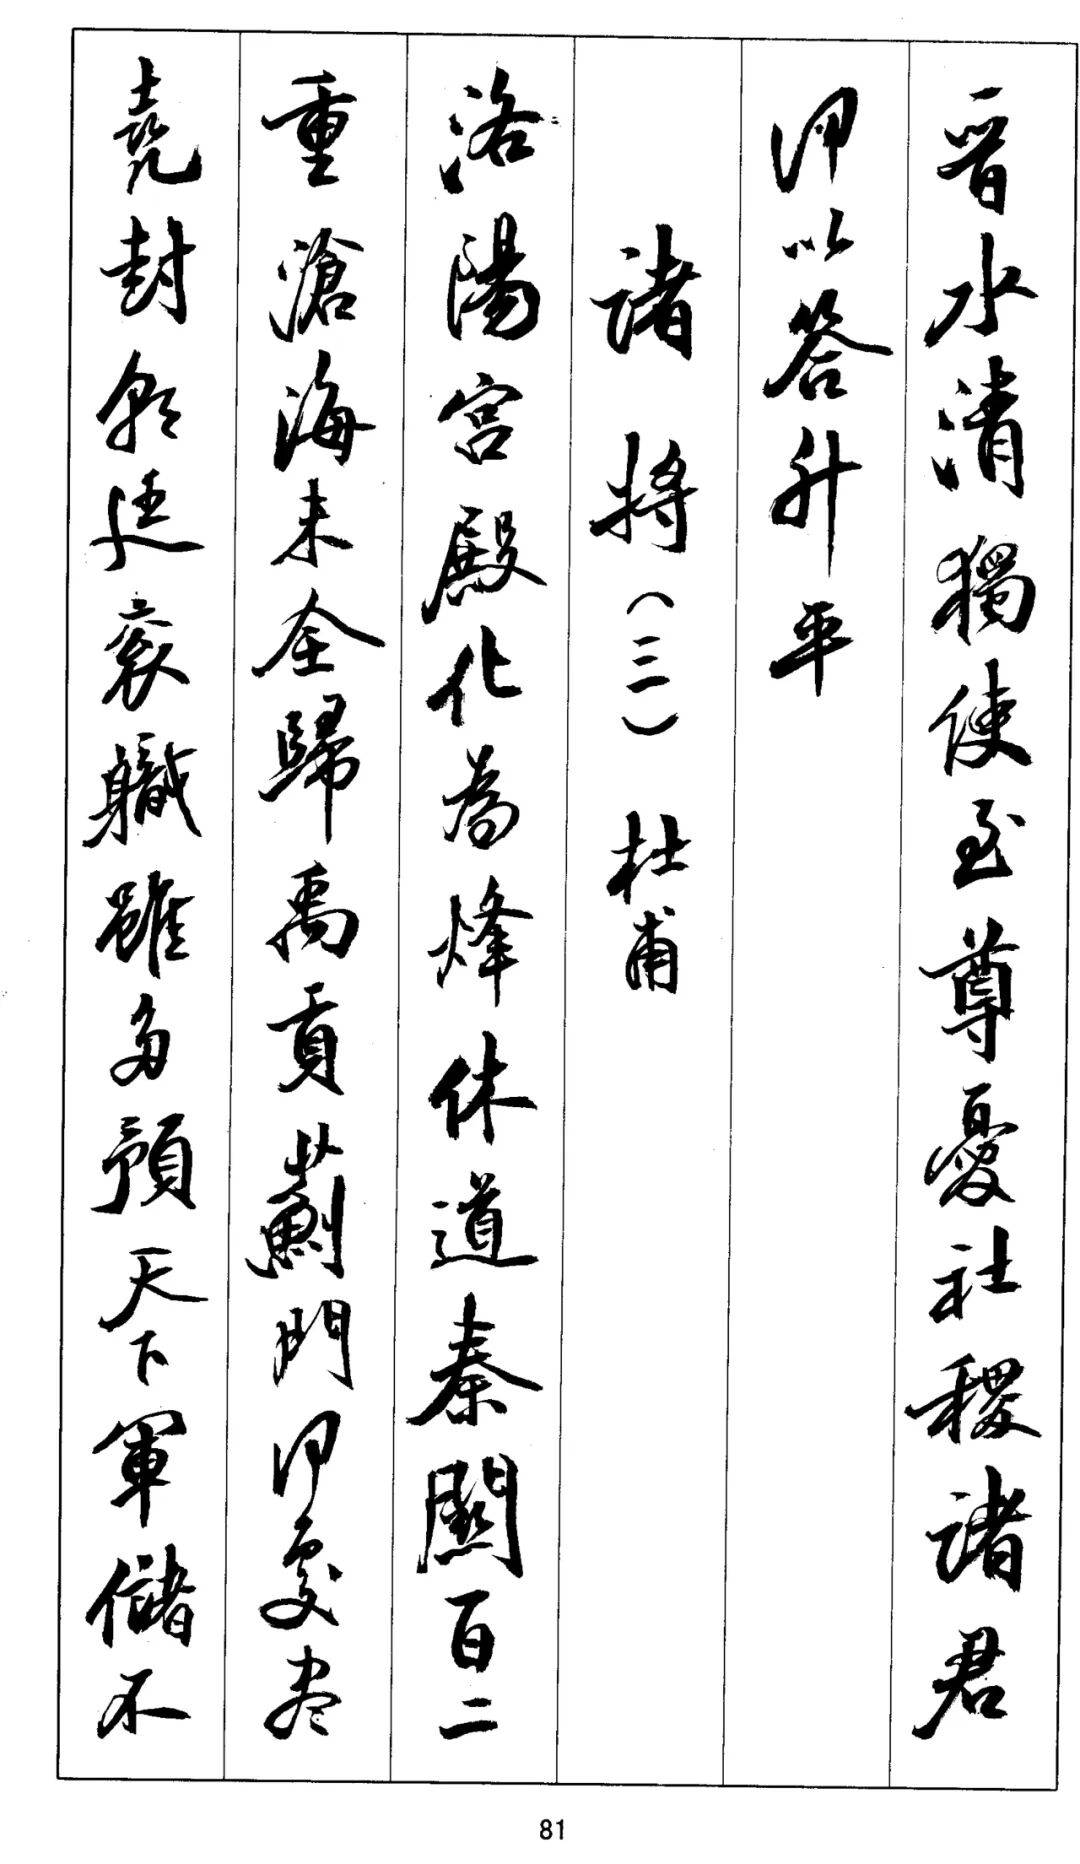 晋水清獨使至尊憂社稷諸君
何以答升平
諸將(三) 杜甫
洛陽宮殿化為烽休道秦關百二
重滄海未全歸禹貢薊門何處盡
堯封朝廷袞職雖多預天下軍儲不
81